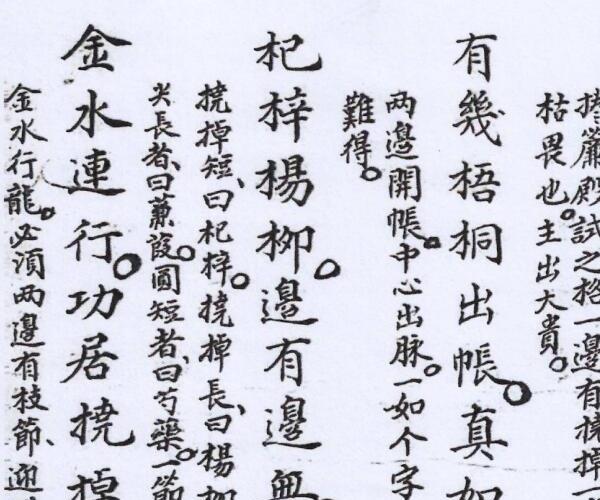 嚴殿試之格一邊有撓掉
枯畏也。主出大貴。
有幾梧桐出帳。真如
两邊開帳。中心出脉。一如个字
難得。
杞梓楊柳。邊有邊無
撓掉短、曰杞梓。撓掉長、曰楊柳
尖長者、曰蒹葭。圓短者、曰芍藥。一節
金水連行。功居撓掉
金水行龍。必須两邊有枝節、迎